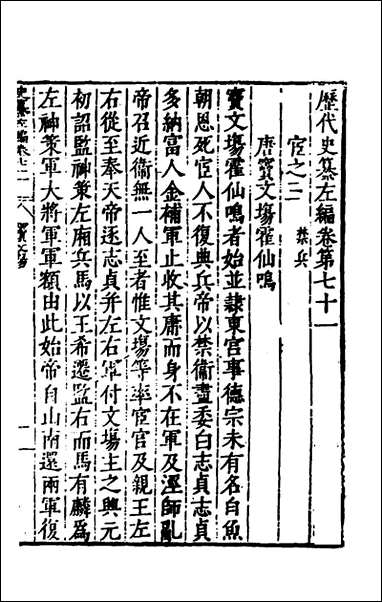 歷代史纂左編卷第七十一
宦之二 禁兵
唐竇文塲霍仙鳴
竇文塲霍仙鳴者始並隸東宮事德宗未有名自魚
朝恩死宦人不復典兵帝以禁衛盡委白志貞志貞
多納富人金補軍止收其庸而身不在軍及涇師亂
帝召近衛無一人至者惟文塲等率宦官及親王左
右從至奉天帝逐志貞并左右軍付文塲主之興元
初詔監神策左廂兵馬以王希遷監右而馬有麟為
左神策軍大將軍軍額由此始帝自山南還兩軍復